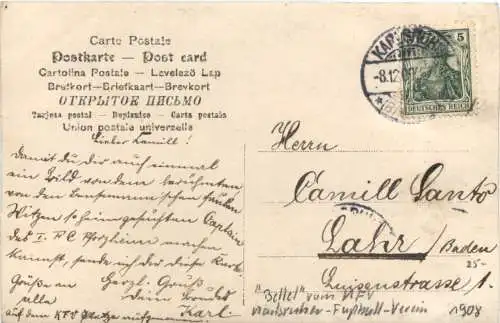 Carte Postale
Postkarte — Post card
Cartolina Postale — Levelező Lap
Brefkort—Briefkaart—Brevkort
ОТКРЫТОЕ ПИСЬМО
Tarjeta postal — Dopisnice — Carta postala
Union postale universelle
Lieber Camill!
Damit du dir auch einmal
ein Bild von dem berühmten
von den
Witzen so heimgesuchten Captain
des I. F C Pforzheim machen
kannst, sende ich dir diese Karte
Grüße an Herzl. Gruß
alle dein
Karl.
auf dem KFV Platze aufgenommen
KARLSRUHE
-8.12.
5
DEUTSCHES REICH
Herrn
Camill Santo
Lahr/Baden
Luisenstrasse 1.
25-
"Bettel" vom KFV
Karlsruher-Fußball-Verein
1908